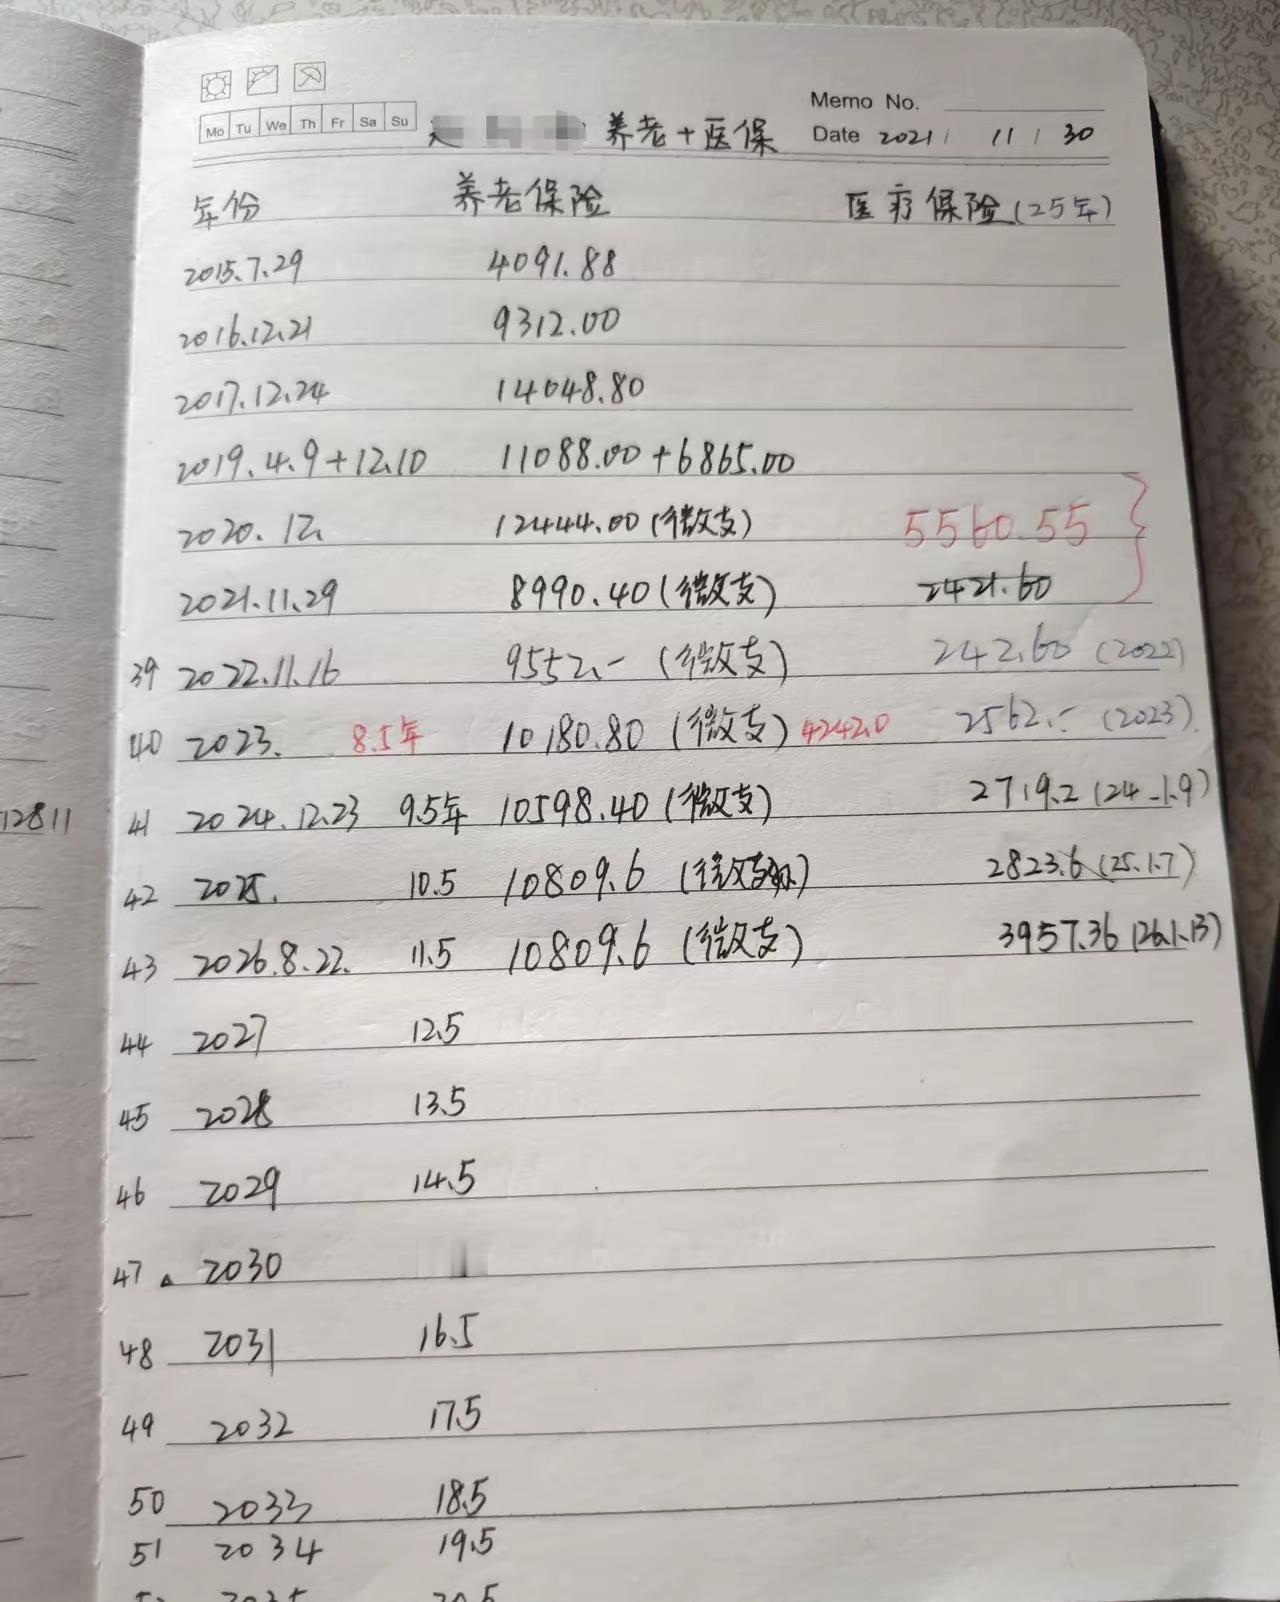 Memo No.
Mo Tu We Th Fr Sa Su
养老+医保
Date 2021 / 11 / 30
年份 养老保险 医疗保险(25年)
2015.7.29 4091.88
2016.12.21 9312.00
2017.12.24 14048.80
2019.4.9+12.10 11088.00+6865.00
2020.12. 12444.00(微支) 5560.55
2021.11.29 8990.40(微支) 2421.60
39 2022.11.16 9552.- (微支) 242.60 (2022)
40 2023. 8.5年 10180.80 (微支) 4242.0 2562.- (2023)
12811
41 2024.12.23 9.5年 10598.40 (微支) 2719.2 (24.1.9)
42 2025. 10.5 10809.6 2823.6 (25.1.7)
43 2026.8.22. 11.5 10809.6 (微支) 3957.36 (26.1.13)
44 2027 12.5
45 2028 13.5
46 2029 14.5
47 2030
48 2031 16.5
49 2032 17.5
50 2033 18.5
51 2034 19.5
2035 20.5